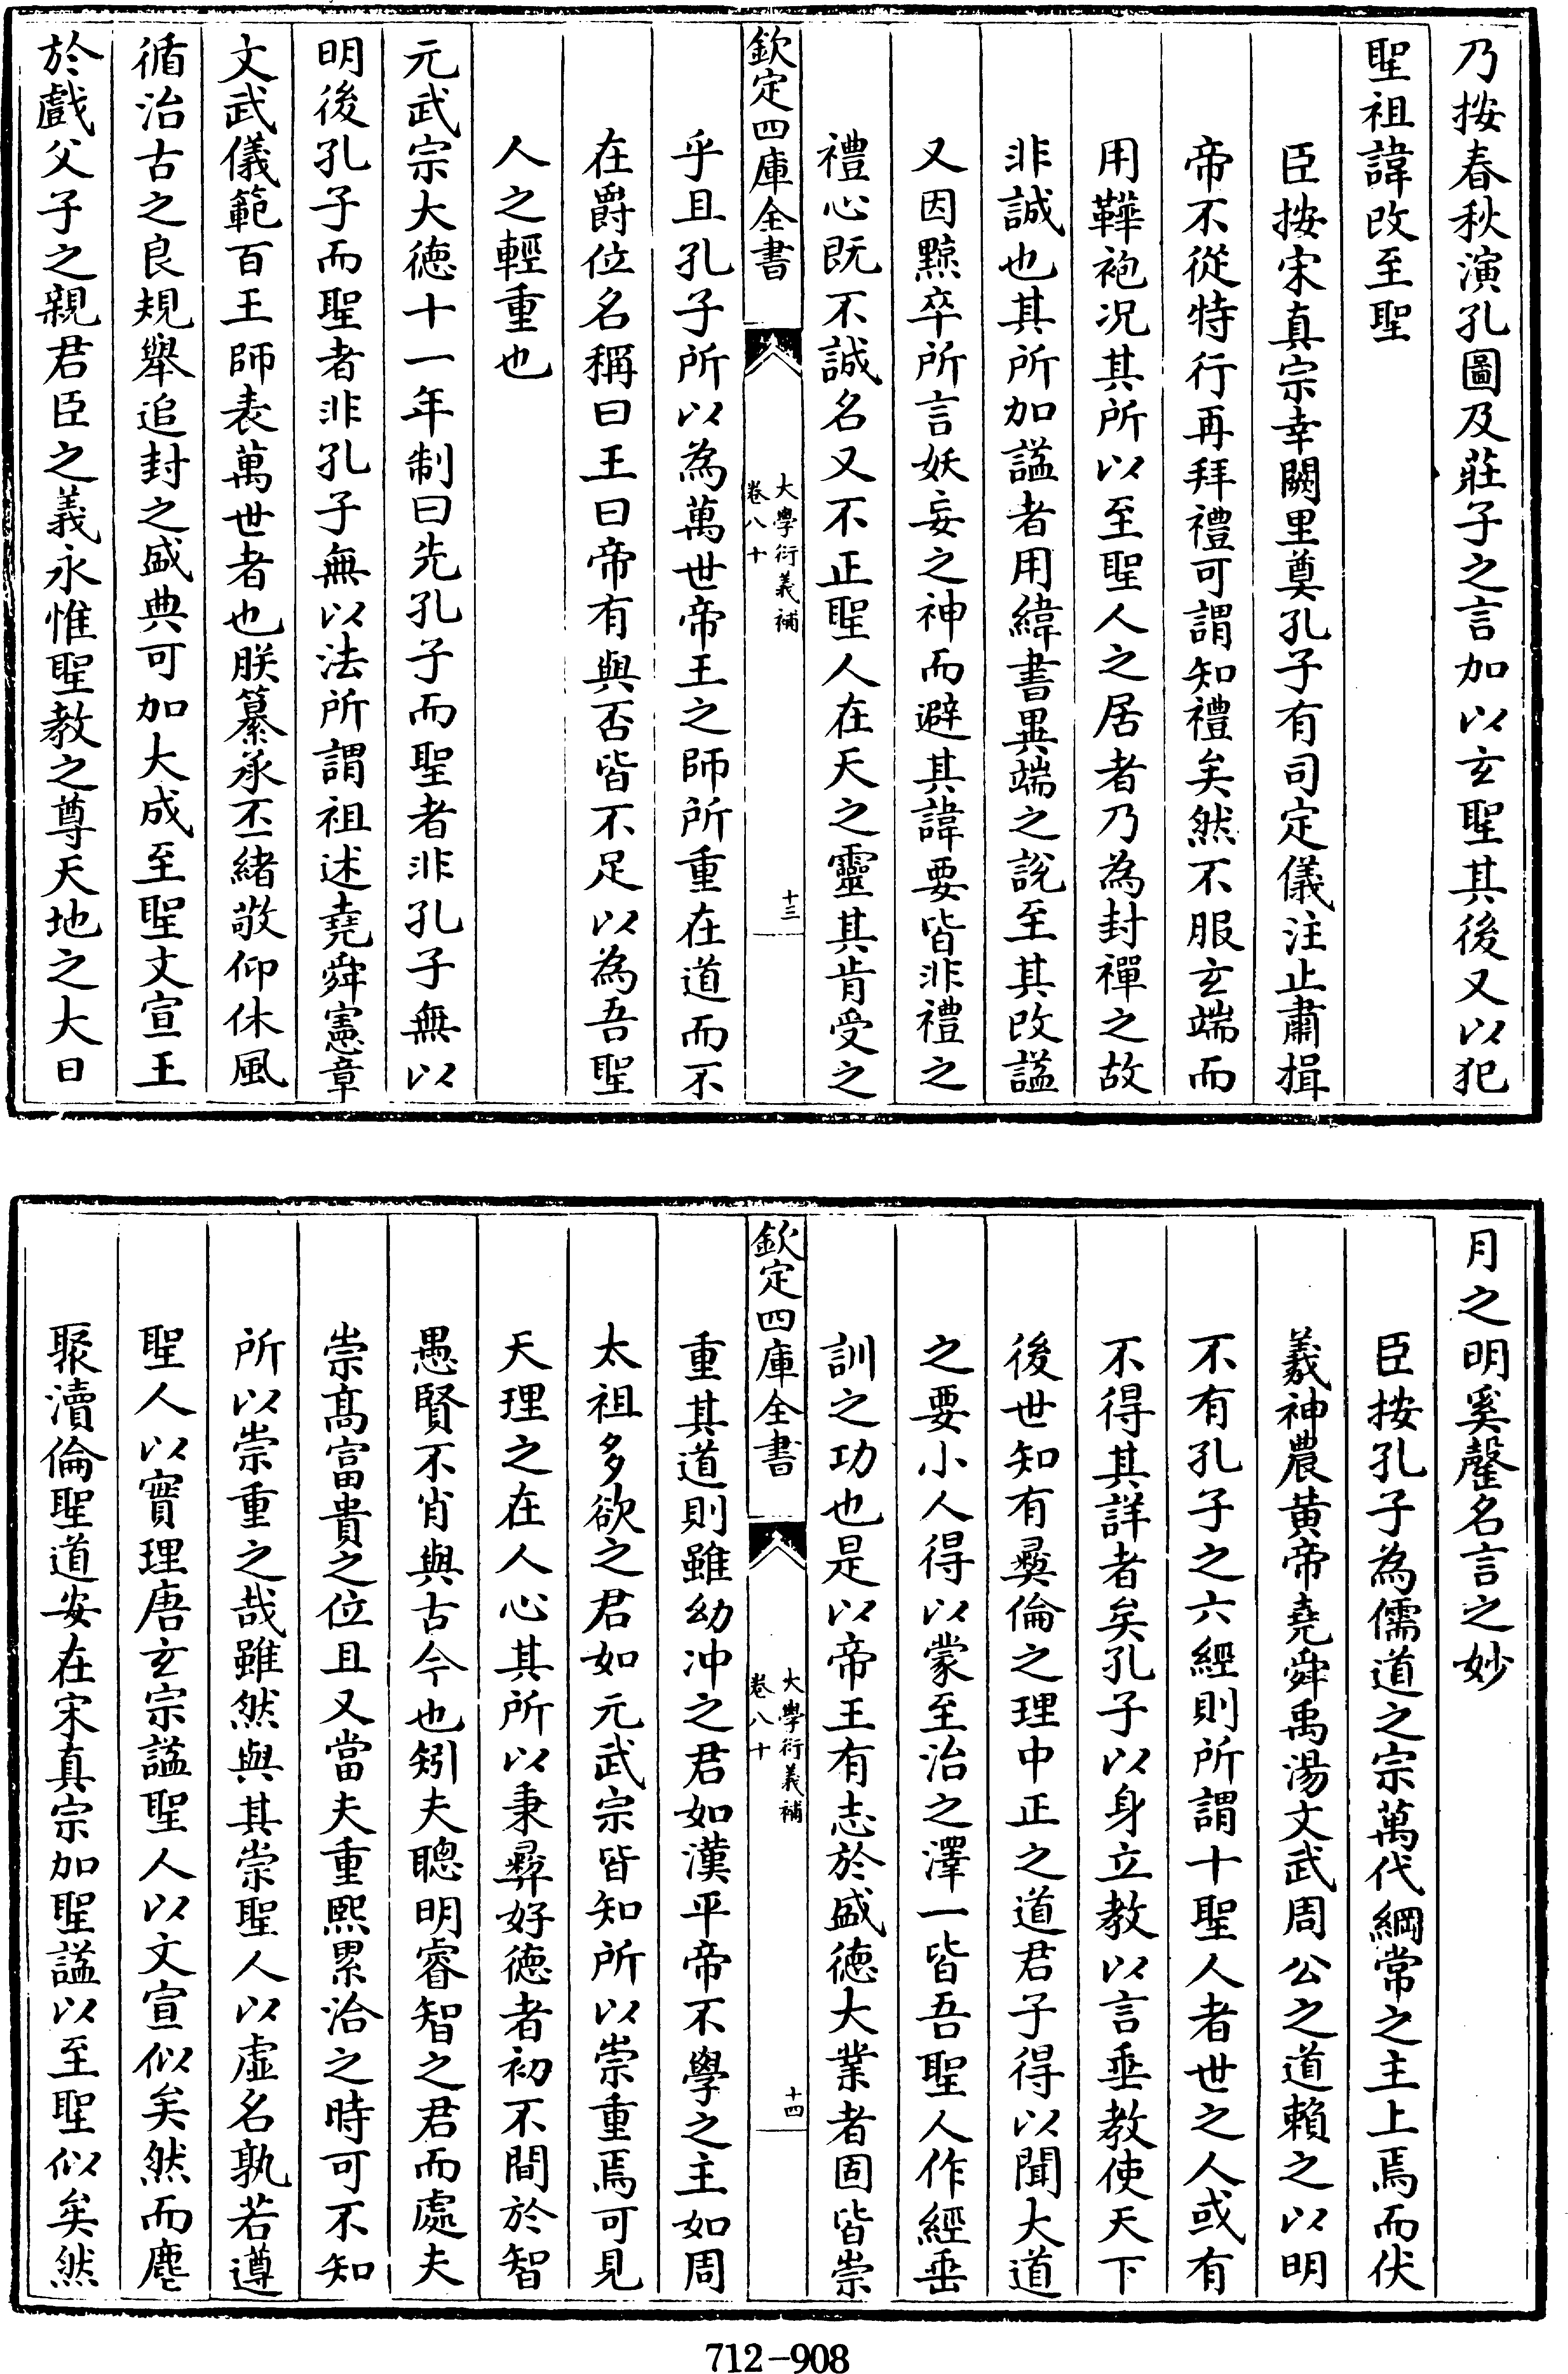 乃按春秋演孔圖及莊子之言加以玄聖其後又以犯
聖祖諱改至聖
臣按宋真宗幸闕里奠孔子有司定儀注止肅揖
帝不從特行再拜禮可謂知禮矣然不服玄端而
用鞾袍況其所以至聖人之居者乃為封禪之故
非誠也其所加諡者用緯書異端之說至其改諡
又因黥卒所言妖妄之神而避其諱要皆非禮之
禮心既不誠名又不正聖人在天之靈其肯受之
欽定四庫全書
大學衍義補
卷八十
十三
乎且孔子所以為萬世帝王之師所重在道而不
在爵位名稱曰王曰帝有與否皆不足以為吾聖
人之輕重也
元武宗大德十一年制曰先孔子而聖者非孔子無以
明後孔子而聖者非孔子無以法所謂祖述堯舜憲章
文武儀範百王師表萬世者也朕纂承丕緒敬仰休風
循治古之良規舉追封之盛典可加大成至聖文宣王
於戲父子之親君臣之義永惟聖教之尊天地之大日
月之明奚罄名言之妙
臣按孔子為儒道之宗萬代綱常之主上焉而伏
羲神農黃帝堯舜禹湯文武周公之道賴之以明
不有孔子之六經則所謂十聖人者世之人或有
不得其詳者矣孔子以身立教以言垂教使天下
後世知有彞倫之理中正之道君子得以聞大道
之要小人得以蒙至治之澤一皆吾聖人作經垂
訓之功也是以帝王有志於盛德大業者固皆崇
欽定四庫全書
大學衍義補
卷八十
十四
重其道則雖幼冲之君如漢平帝不學之主如周
太祖多欲之君如元武宗皆知所以崇重焉可見
天理之在人心其所以秉彞好德者初不間於智
愚賢不肖與古今也矧夫聰明睿智之君而處夫
崇高富貴之位且又當夫重熙累洽之時可不知
所以崇重之哉雖然與其崇聖人以虛名孰若遵
聖人以實理唐玄宗諡聖人以文宣似矣然而麀
聚瀆倫聖道安在宋真宗加聖諡以至聖似矣然
712-908